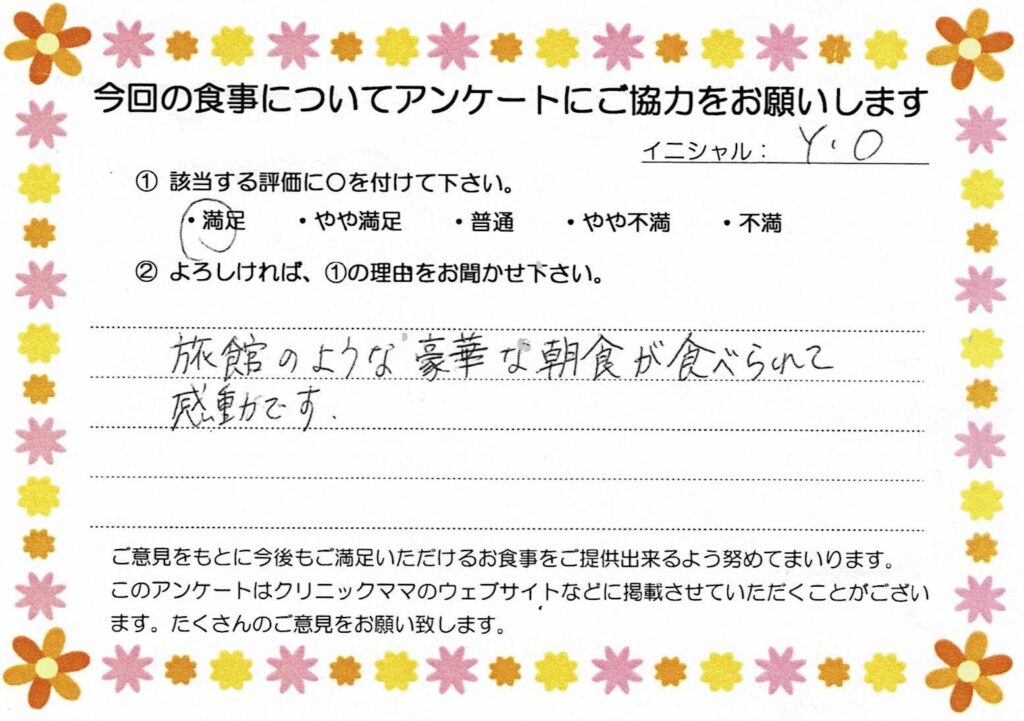 今回の食事についてアンケートにご協力をお願いします
イニシャル： Y・O
① 該当する評価に〇を付けて下さい。
・満足 ・やや満足 ・普通 ・やや不満 ・不満
② よろしければ、①の理由をお聞かせ下さい。
旅館のような豪華な朝食が食べられて
感動です.
ご意見をもとに今後もご満足いただけるお食事をご提供出来るよう努めてまいります。
このアンケートはクリニックママのウェブサイトなどに掲載させていただくことがござい
ます。たくさんのご意見をお願い致します。